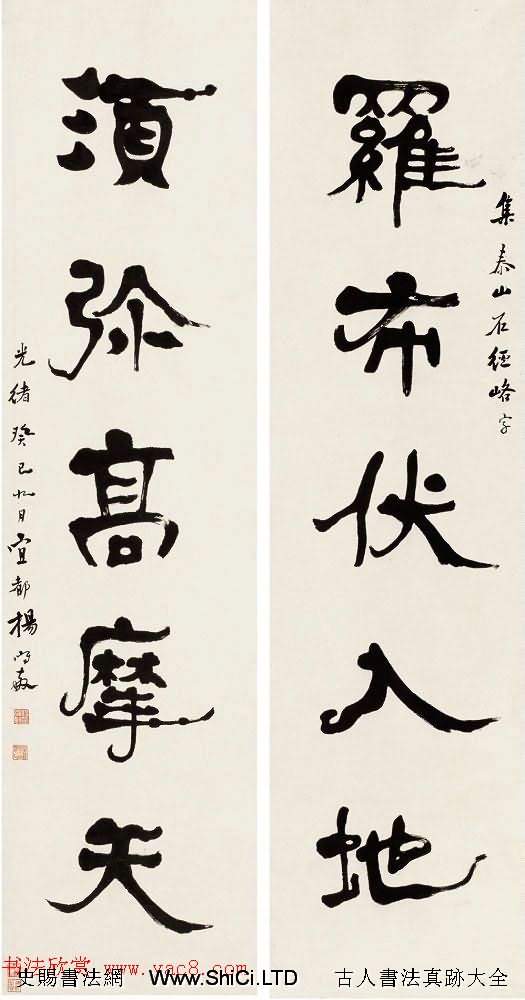 羅布伏入地
集泰山石經峪字
須弥高摩天
光緒癸巳九日宜都楊守敬
书法欣赏 www.yac8.com
史賜書法網
www.ShiCi.LTD
古人書法真跡大全